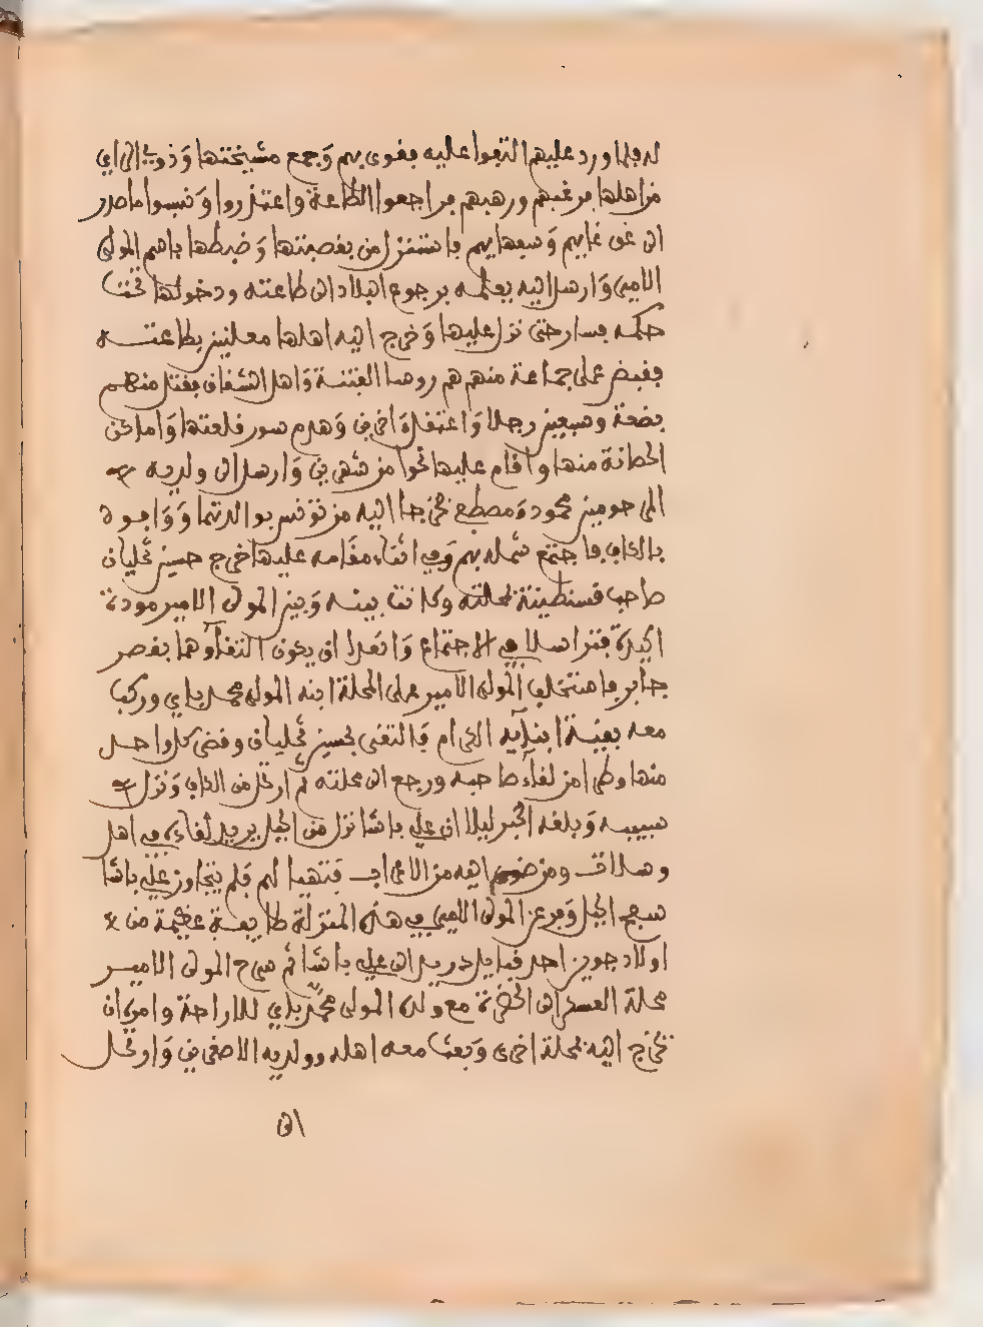 له فلما ورد عليهم التفوا عليه فقوى بهم وجمع مشيختها وذوي الراي
من اهلها فرغبهم ورهبهم فراجعوا الطاعة واعتذروا ونسبوا ما صدر
الى غوغايهم وسفهايهم فاستنزل من بقصبتها وضبطها باسم المولى
الامير وارسل اليه يعلمه برجوع البلاد الى طاعته ودخولها تحت
حكمه فسار حتى نزل عليها وخرج اليه اهلها معلنين بطاعته
فقبض على جماعة منهم هم روسا الفتنة واهل الشقاق فقتل منهم
بضعة وسبعين رجلا واعتقل اخرين وهدم سور قلعتها واماكن
الحصانة منها واقام عليها نحوا من شهرين وارسل الى ولديه
المرحومين محمود ومصطفى فخرجا اليه من تونس بوالدتهما ووافوه
بالكاف فاجتمع شمله بهم وفي اثناء مقامه عليها خرج حسين كليان
صاحب قسنطينة بمحلته وكانت بينه وبين المولى الامير مودة
اكيدة فتراسلا في الاجتماع واتعدا ان يكون التقاوهما بقصر
جابر فاستخلف المولى الامير على المحلة ابنه المولى محمد باي وركب
معه بقية ابنآيه الكرام فالتقى بحسين كليان وقضى كل واحد
منهما وطرا من لقاء صاحبه ورجع الى محلته ثم ارتحل من الكاف ونزل
سبيبه وبلغه الخبر ليلا ان علي باشا نزل من الجبل يريد لقاءه في اهل
وسلات ومن ضوى اليه من الاعراب فتهيا لهم فلم يتجاوز علي باشا
سفح الجبل وفر عن المولى الامير في هذه المنزلة طايفة عظيمة من
اولاد جوين احد قبايل دريد الى علي باشا ثم سرح المولى الامير
محلة العسكر الى الحضرة مع ولده المولى محمد باي للاراحة وامره ان
يخرج اليه بمحلة اخرى وبعث معه اهله وولديه الاصغرين وارتحل
الى